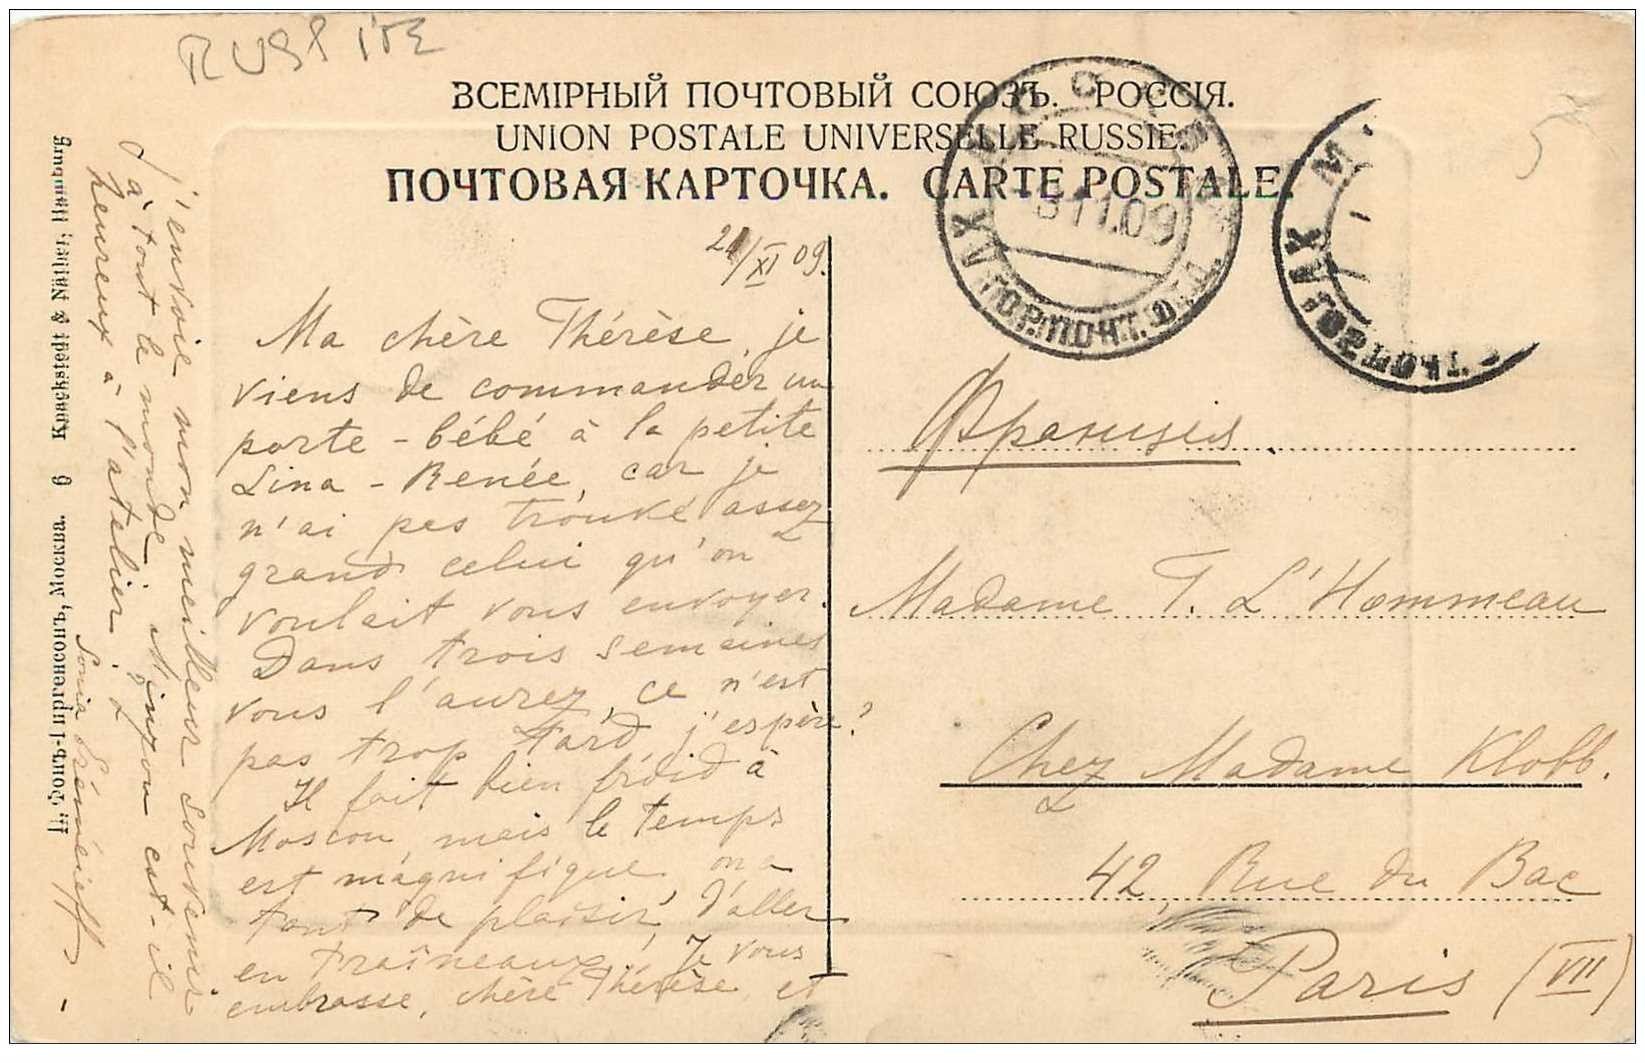 RUSSIE
ВСЕМІРНЫЙ ПОЧТОВЫЙ СОЮЗЪ. РОССІЯ.
UNION POSTALE UNIVERSELLE RUSSIE.
ПОЧТОВАЯ КАРТОЧКА. CARTE POSTALE.
МОСКВА
11.09
ГОР. ПОЧТ.
5
21/XI 09.
Ma chère Thérèse, je
viens de commander un
porte-bébé à la petite
Lina-Renée, car je
n'ai pas trouvé assez
grand celui qu'on
voulait vous envoyer.
Dans trois semaines
vous l'aurez, ce n'est
pas trop tard, j'espère?
Il fait bien froid à
Moscou, mais le temps
est magnifique, on a
tant de plaisir, d'aller
en traîneaux. Je vous
embrasse, chère Thérèse, et
j'envoie mon meilleur souvenir
à tout le monde. est-il
heureux à l'atelier?
Sonia
Франція
Madame T. L'Hommeau
Chez Madame Klobb.
42, Rue du Bac
Paris (VII)
Knackstedt & Näther, Hamburg
6
П. Фонъ-Гиргенсонъ, Москва.